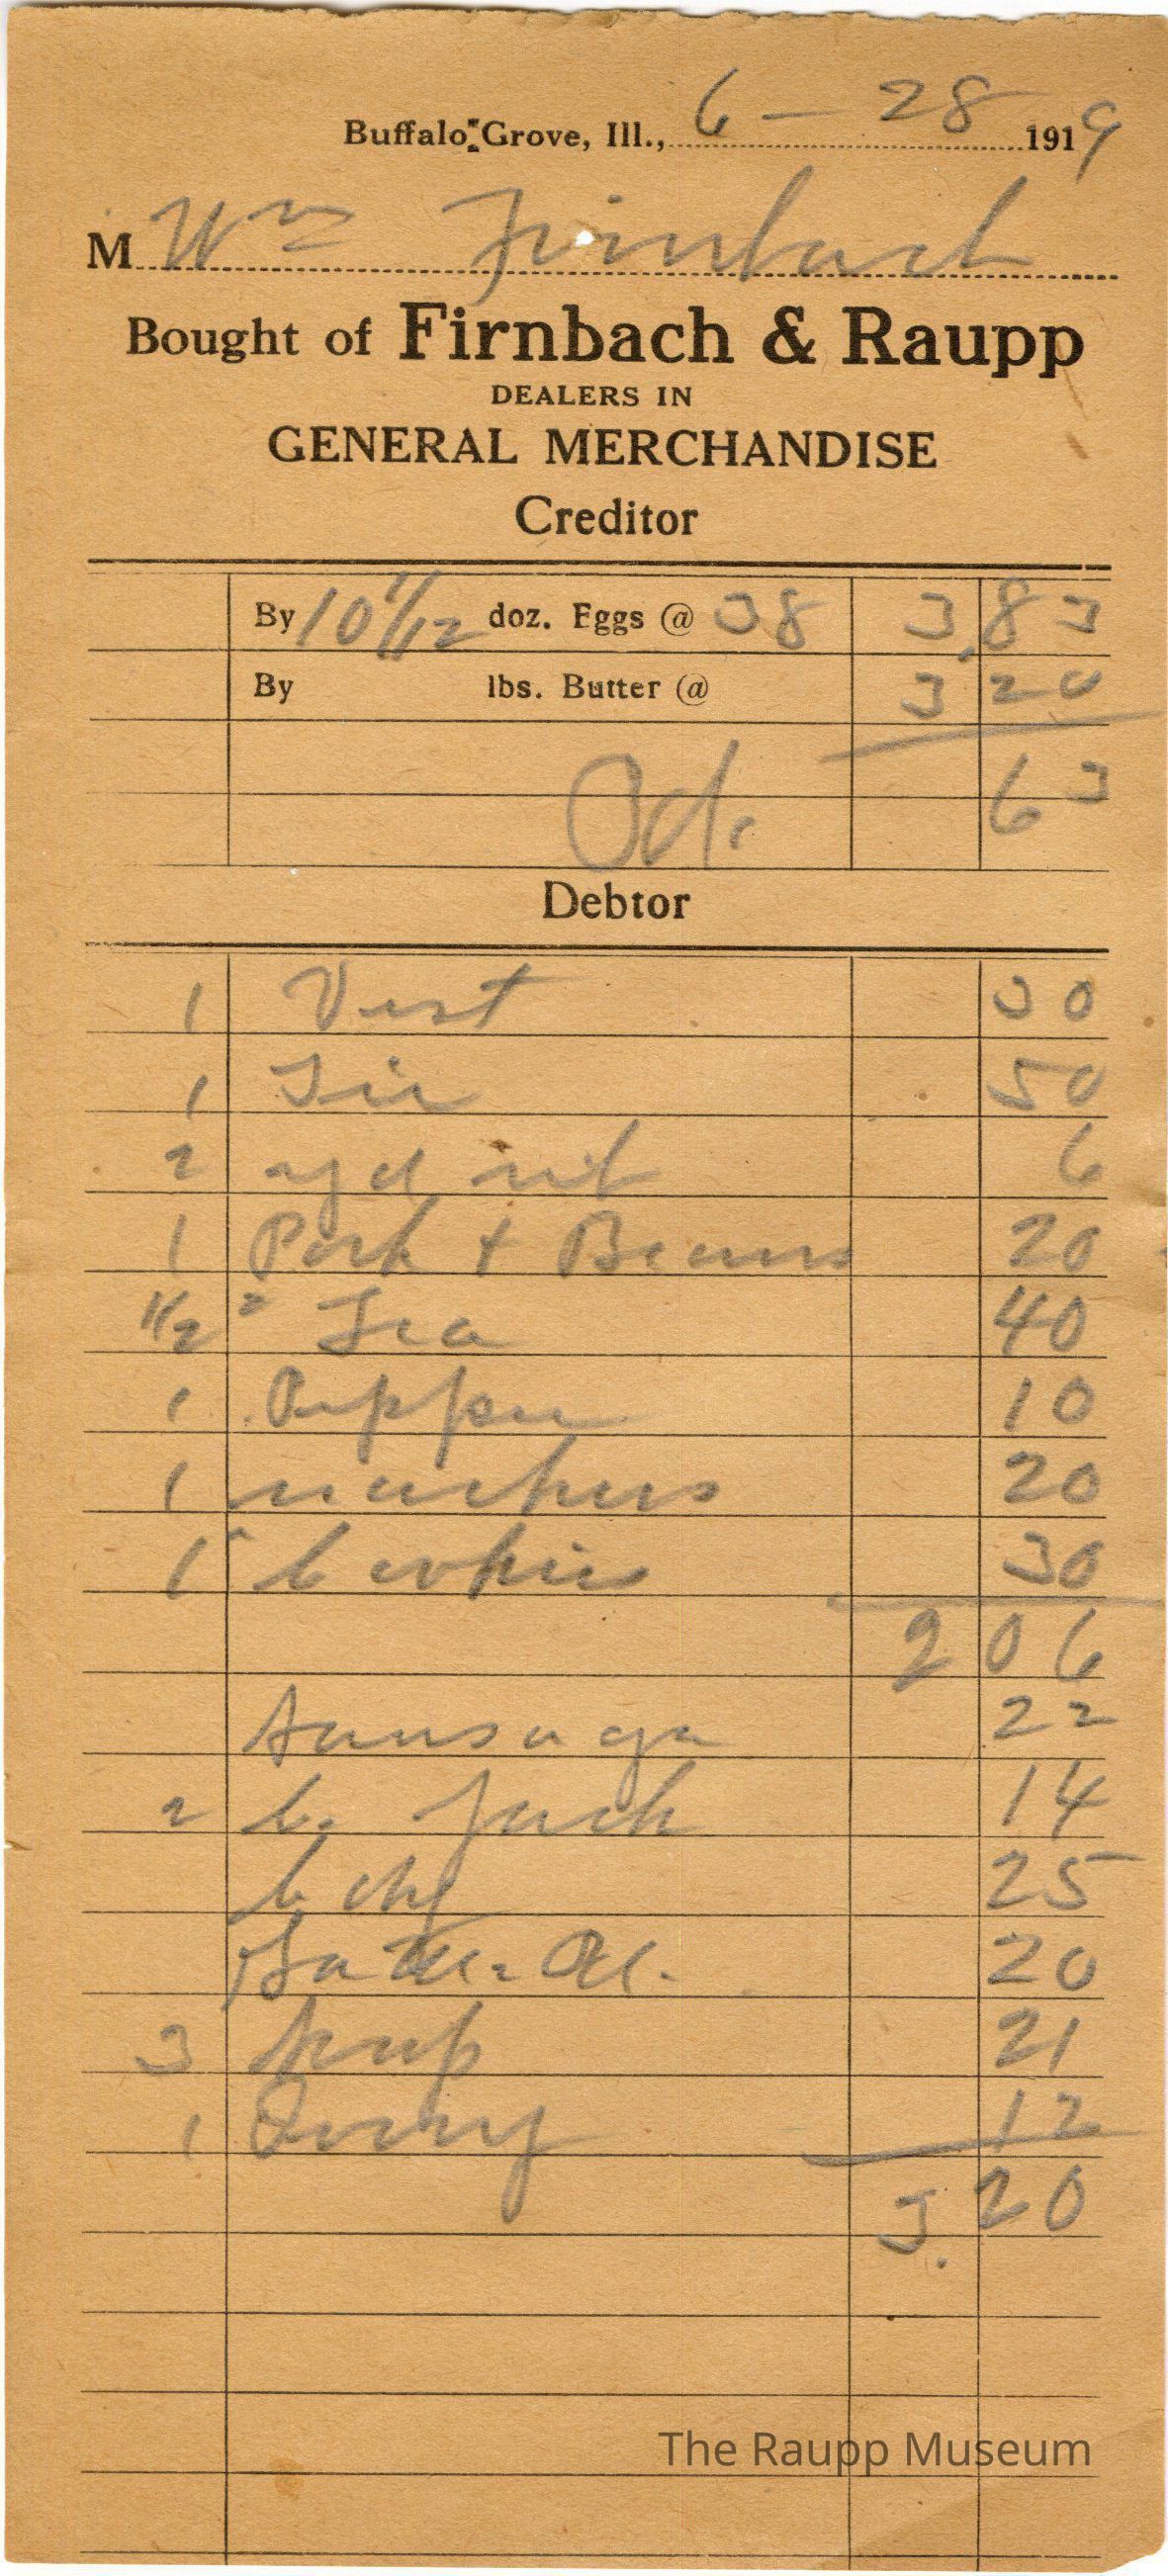 Buffalo Grove, Ill., 6 - 28 1919
M Wm Firnbach
Bought of Firnbach & Raupp
DEALERS IN
GENERAL MERCHANDISE
Creditor
By 10 1/12 doz. Eggs @ 38 3.83
By lbs. Butter @ 3 20
63
Debtor
1 Vest 30
1 50
2 6
1 Pork + Beans 20
1/2 Tea 40
1 Pepper 10
1 20
1 Cookies 30
2 06
Sausage 22
2 14
25
20
3 21
1 Ivory 12
3.20
The Raupp Museum